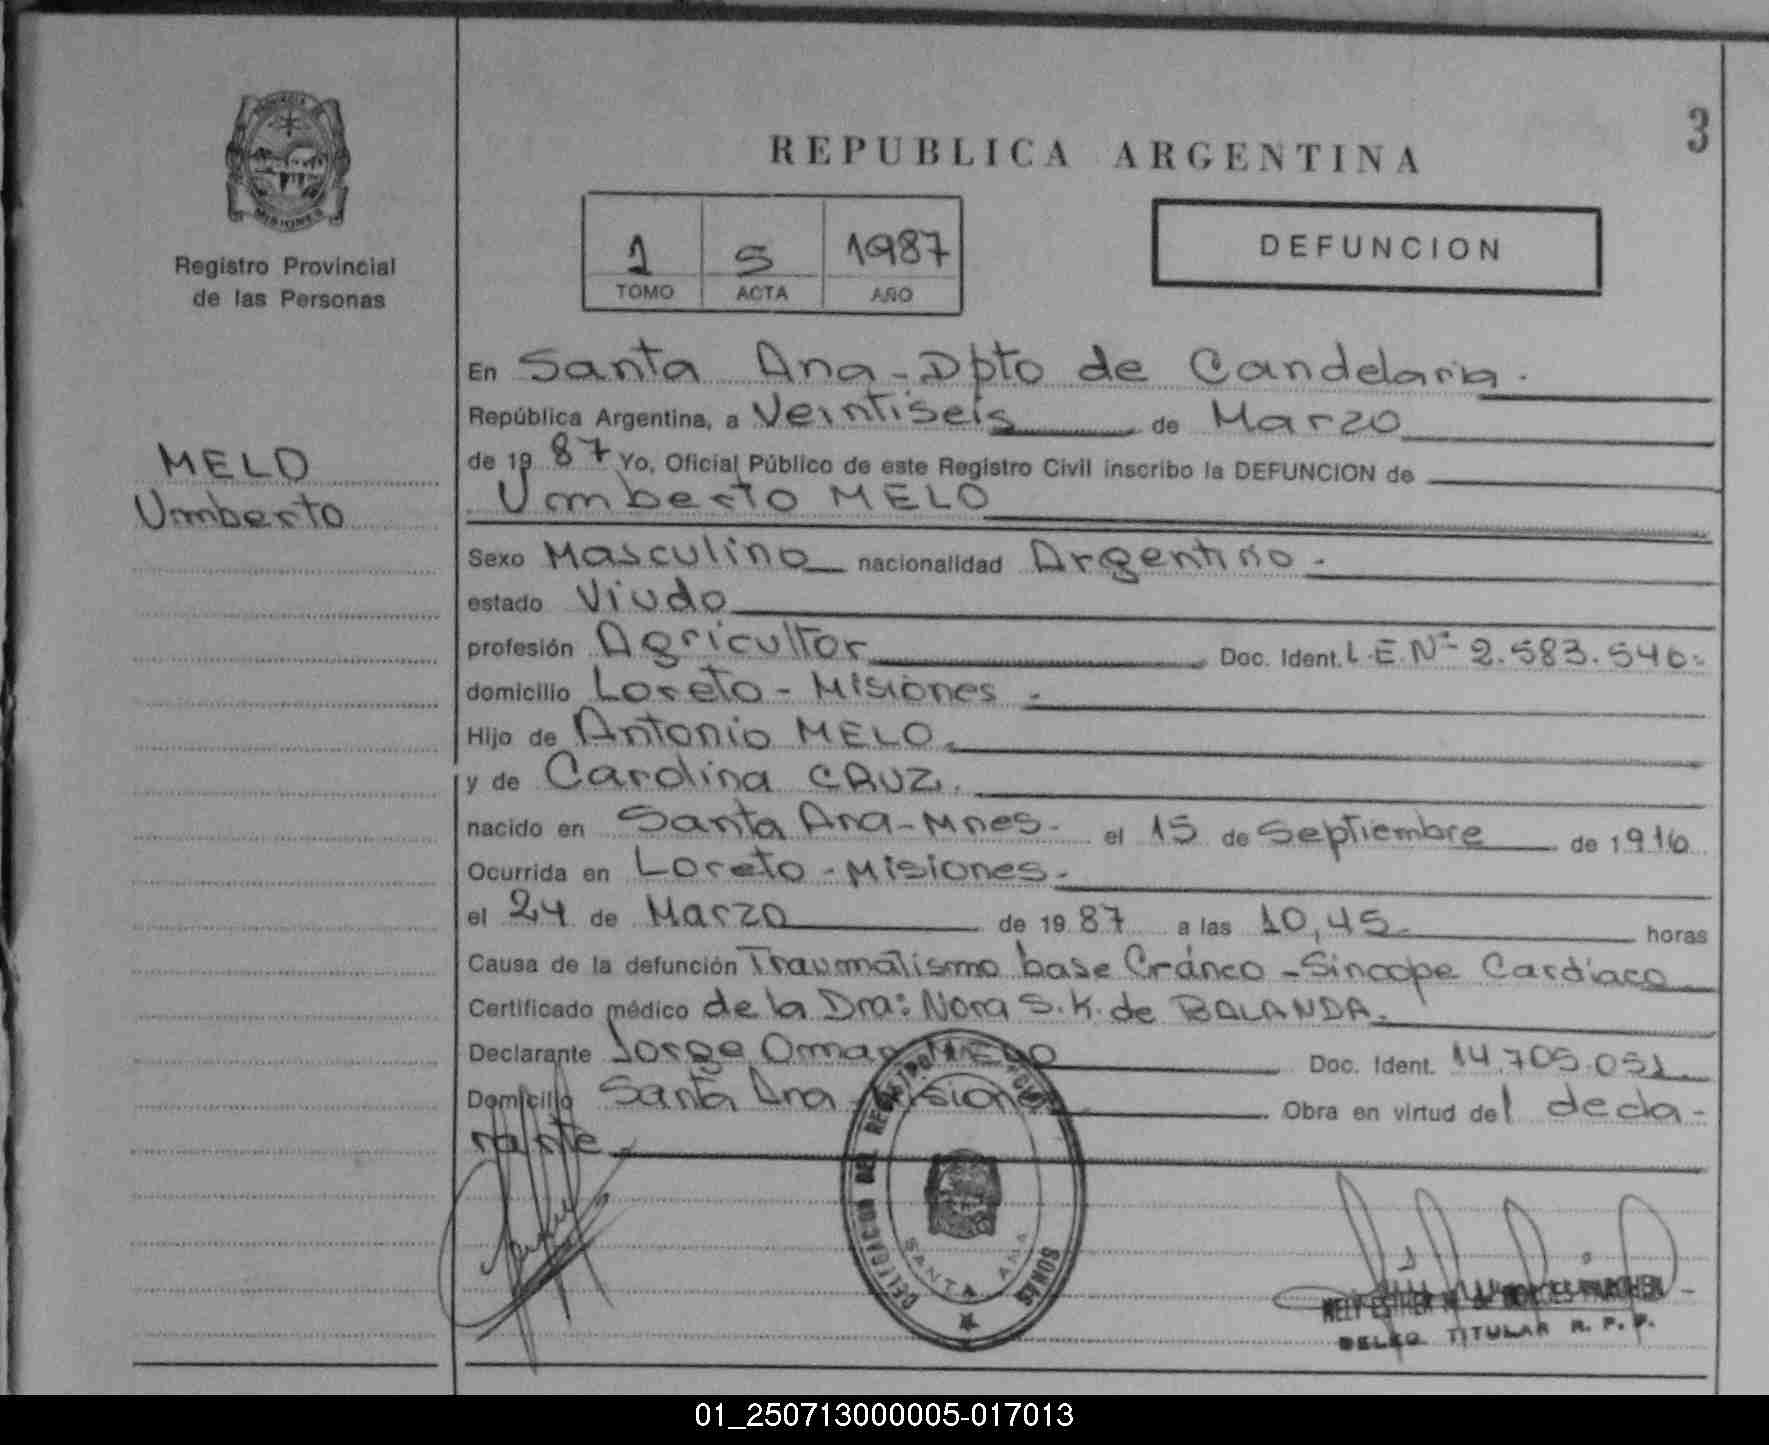 3
REPUBLICA ARGENTINA
PROVINCIA
MISIONES
Registro Provincial
de las Personas
1 5 1987
TOMO ACTA AÑO
DEFUNCION
MELO
Umberto
En Santa Ana - Dpto de Candelaria.
República Argentina, a Veintiseis de Marzo
de 19 87 Yo, Oficial Público de este Registro Civil inscribo la DEFUNCION de
Umberto MELO
Sexo Masculino nacionalidad Argentino.
estado Viudo
profesión Agricultor Doc. Ident. L.E.Nº 2.583.546.
domicilio Loreto - Misiones.
Hijo de Antonio MELO.
y de Carolina CRUZ.
nacido en Santa Ana - Mnes. el 15 de Septiembre de 1916
Ocurrida en Loreto - Misiones.
el 24 de Marzo de 19 87 a las 10,45 horas
Causa de la defunción Traumatismo base Cráneo - Sincope Cardiaco
Certificado médico de la Dra: Nora S.K. de BALANDA.
Declarante Jorge Omar MELO Doc. Ident. 14.705.051
Domicilio Santa Ana Misiones Obra en virtud del decla-
rante
DELEGACION DEL REGISTRO
SANTA ANA
DELEG. TITULAR R. P. P.
01_250713000005-017013